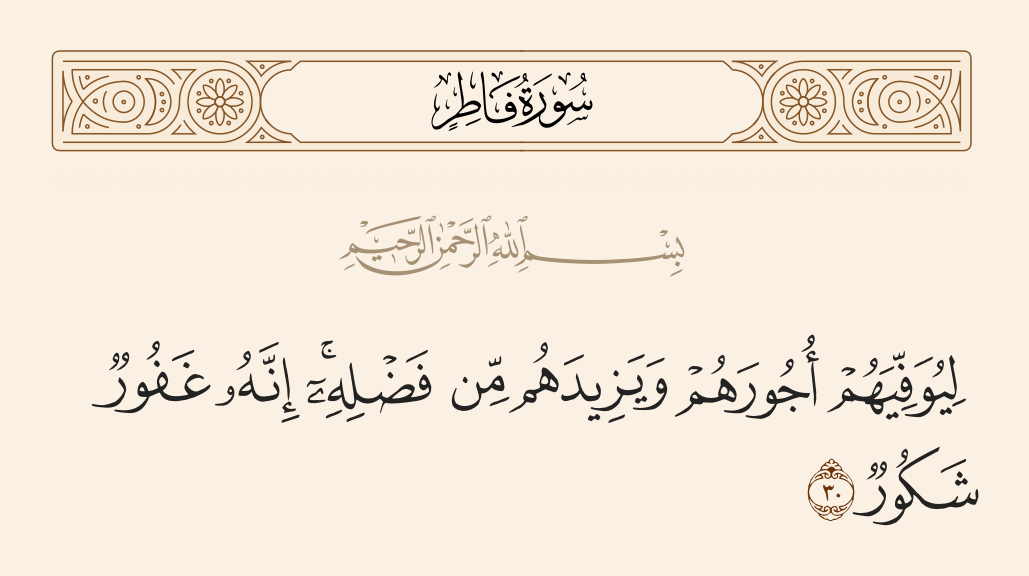 سُورَةُ فَاطِرٍ
بِسْمِ ٱللَّهِ ٱلرَّحْمَٰنِ ٱلرَّحِيمِ
لِيُوَفِّيَهُمْ أُجُورَهُمْ وَيَزِيدَهُم مِّن فَضْلِهِۦٓ ۚ إِنَّهُۥ غَفُورٌ
شَكُورٌ ٣٠